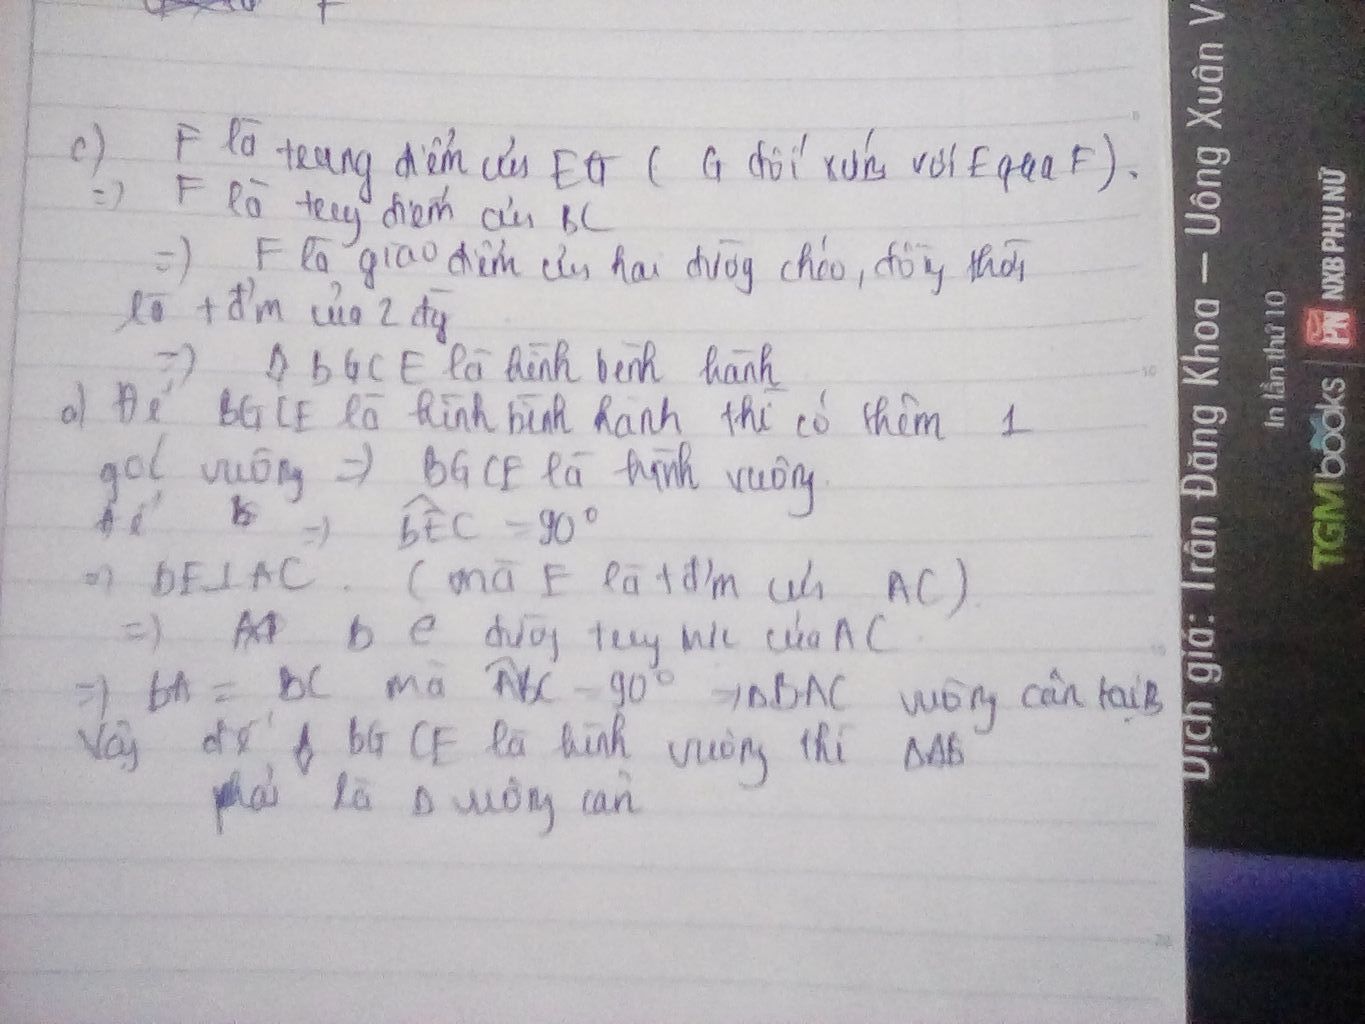 F
c) F là trung điểm của EG ( G đối xứng với E qua F).
=) F là trug điểm của BC
=) F là giao điểm của hai đường chéo, đồng thời
là + đ'm của 2 đg
=) BGCE là hình bình hành
Để BGCE là hình bình hành thì có thêm 1
góc vuông =) BGCE là hình vuông.
=) BEC = 90°
=) BE⊥AC. (mà E là + đ'm của AC)
=) B E đường trug trực của AC.
=) BA = BC mà ABC = 90° => ΔBAC vuông cân tại B
Vậy để BGCE là hình vuông thì ΔAB
phải là Δ vuông cân
Dịch giả: Trần Đăng Khoa – Uông Xuân V
In lần thứ 10
TGM books PN NXB PHỤ NỮ